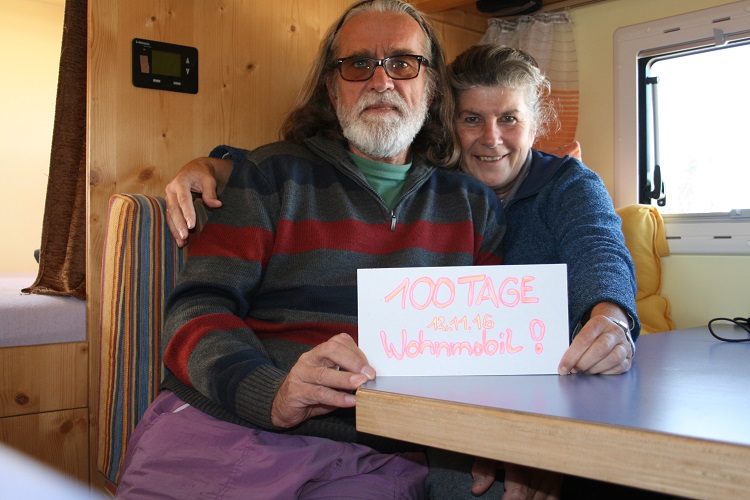 100 TAGE
12.11.16
Wohnmobil!